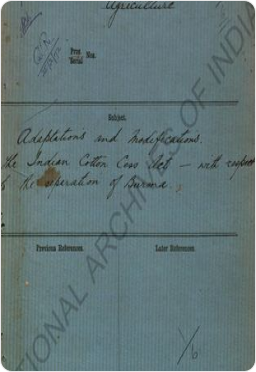 Agriculture
Prog. Nos.
Serial
Subject.
Adaptations and Modifications.
the Indian Cotton Cess Act – with respect
to the separation of Burma.
Previous References.
Later References.
NATIONAL ARCHIVES OF INDIA